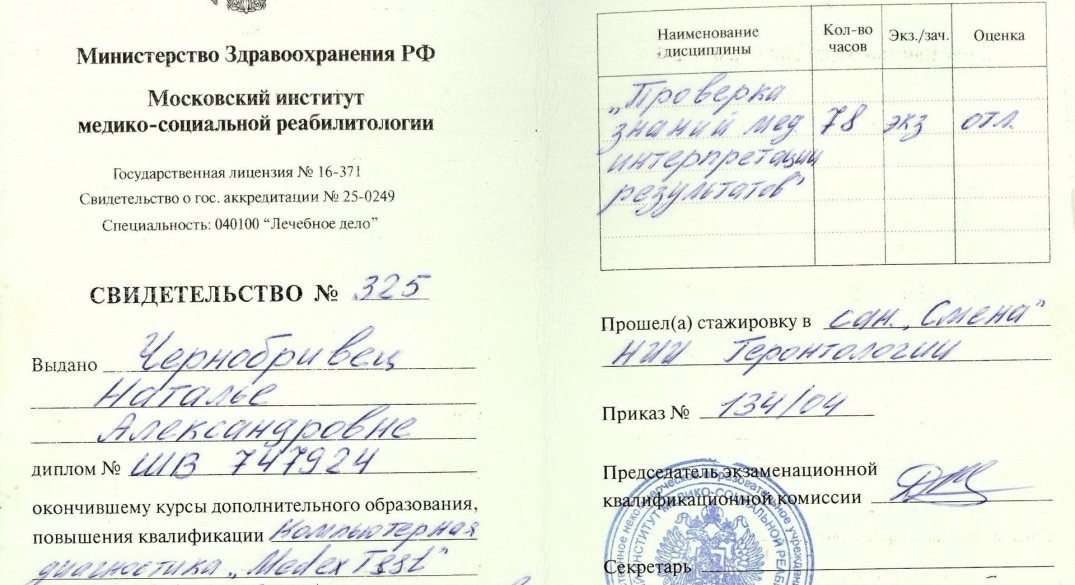 Министерство Здравоохранения РФ
Московский институт
медико-социальной реабилитологии
Государственная лицензия № 16-371
Свидетельство о гос. аккредитации № 25-0249
Специальность: 040100 “Лечебное дело”
СВИДЕТЕЛЬСТВО № 325
Выдано Чернобривец
Наталье
Александровне
диплом № ШВ 747924
окончившему курсы дополнительного образования,
повышения квалификации Компьютерная
диагностика „Medex Test“
Наименование дисциплины
Кол-во часов
Экз./зач.
Оценка
„Проверка
знаний мед 78 экз отл.
интерпретации
результатов“
Прошел(а) стажировку в сан. „Смена“
НИИ Геронтологии
Приказ № 134/04
Председатель экзаменационной
квалификационной комиссии
Секретарь